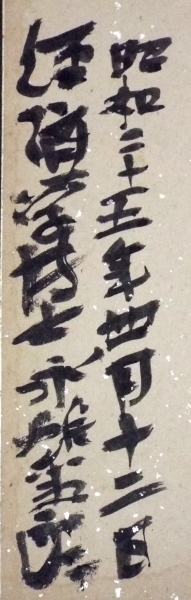 昭和二十五年四月十二日
経済学博士永雄策郎